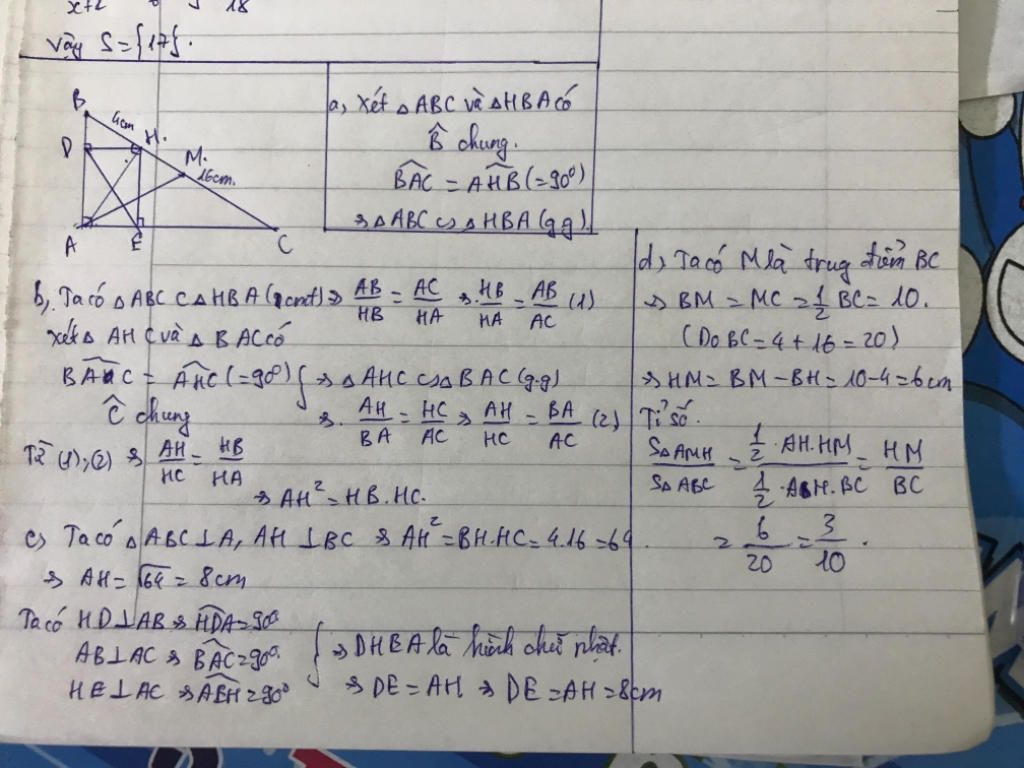 x+2 6 5 18
Vậy S={17}.
B
4cm
D
H.
M.
16cm.
A
E
C
a, Xét △ABC và △HBA có
B̂ chung.
B͡AC = A͡HB (=90⁰)
⇒ △ABC ∽ △HBA (g.g).
b, Ta có △ABC ∽ △HBA (cmt) ⇒ AB/HB = AC/HA ⇒ HB/HA = AB/AC (1)
Xét △AHC và △BAC có
B͡AC = A͡HC (=90⁰)
Ĉ chung
} ⇒ △AHC ∽ △BAC (g.g)
⇒ AH/BA = HC/AC ⇒ AH/HC = BA/AC (2)
Từ (1);(2) ⇒ AH/HC = HB/HA
⇒ AH² = HB.HC.
c, Ta có △ABC⊥A, AH⊥BC ⇒ AH² = BH.HC = 4.16 = 64.
⇒ AH = √64 = 8cm
Ta có HD⊥AB ⇒ H͡DA=90⁰
AB⊥AC ⇒ B͡AC=90⁰.
HE⊥AC ⇒ A͡EH=90⁰
} ⇒ DHEA là hình chữ nhật.
⇒ DE = AH ⇒ DE = AH = 8cm
d, Ta có M là trug điểm BC
⇒ BM = MC = 1/2 BC = 10.
(Do BC = 4 + 16 = 20)
⇒ HM = BM − BH = 10 − 4 = 6cm
Tỉ số.
S△AMH/S△ABC = (1/2 . AH.HM)/(1/2 . AH.BC) = HM/BC
= 6/20 = 3/10.